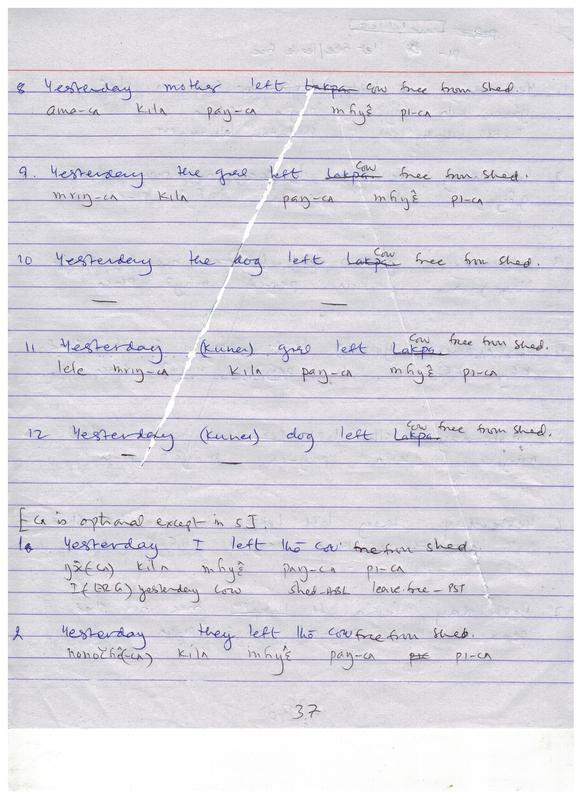 8 Yesterday mother left Lakpa cow free from shed.
ama-ca kilʌ pay-ca mhyẽ pi-cʌ
9. Yesterday the girl left Lakpa cow free from shed.
mriŋ-cʌ kilʌ pay-cʌ mhyẽ pi-cʌ
10 Yesterday the dog left Lakpa cow free from shed.
— —
11 Yesterday (kuner) girl left Lakpa cow free from shed.
lele mriŋ-cʌ kilʌ pay-cʌ mhyẽ pi-cʌ
12 Yesterday (kuner) dog left Lakpa cow free from shed.
— —
[ca is optional except in 5].
1. Yesterday I left the cow free from shed
(cʌ) kilʌ mhyẽ pay-cʌ pi-cʌ
I (ERG) yesterday cow shed-ABL leave.free-PST
2 Yesterday they left the cow free from shed.
kilʌ mhyẽ pay-cʌ pi-cʌ
37